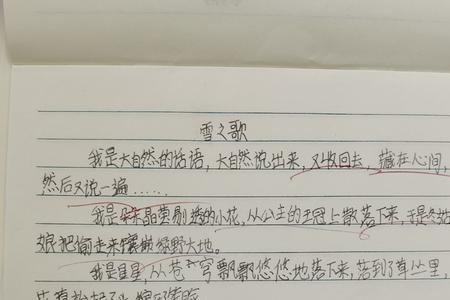 雪之歌
我是大自然的话语，大自然说出来，又收回去，藏在心间，
然后又说一遍……
我是朵晶莹剔透的小花，从公主的王冠上散落下来，于是冬姑
娘把偷走来镶嵌绿野大地。
我是星星，从苍穹飘飘悠悠地落下来，落到了草丛里，